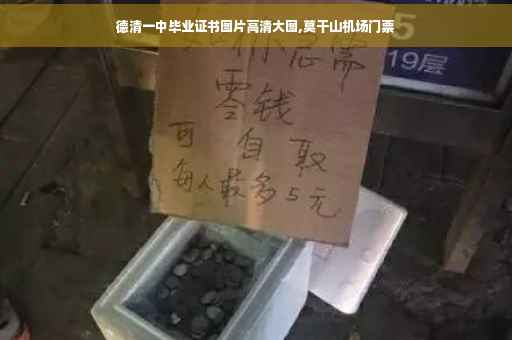 德清一中毕业证书图片高清大图,莫干山机场门票
如你急需
零钱
可自取
每人最多5元
5
19层